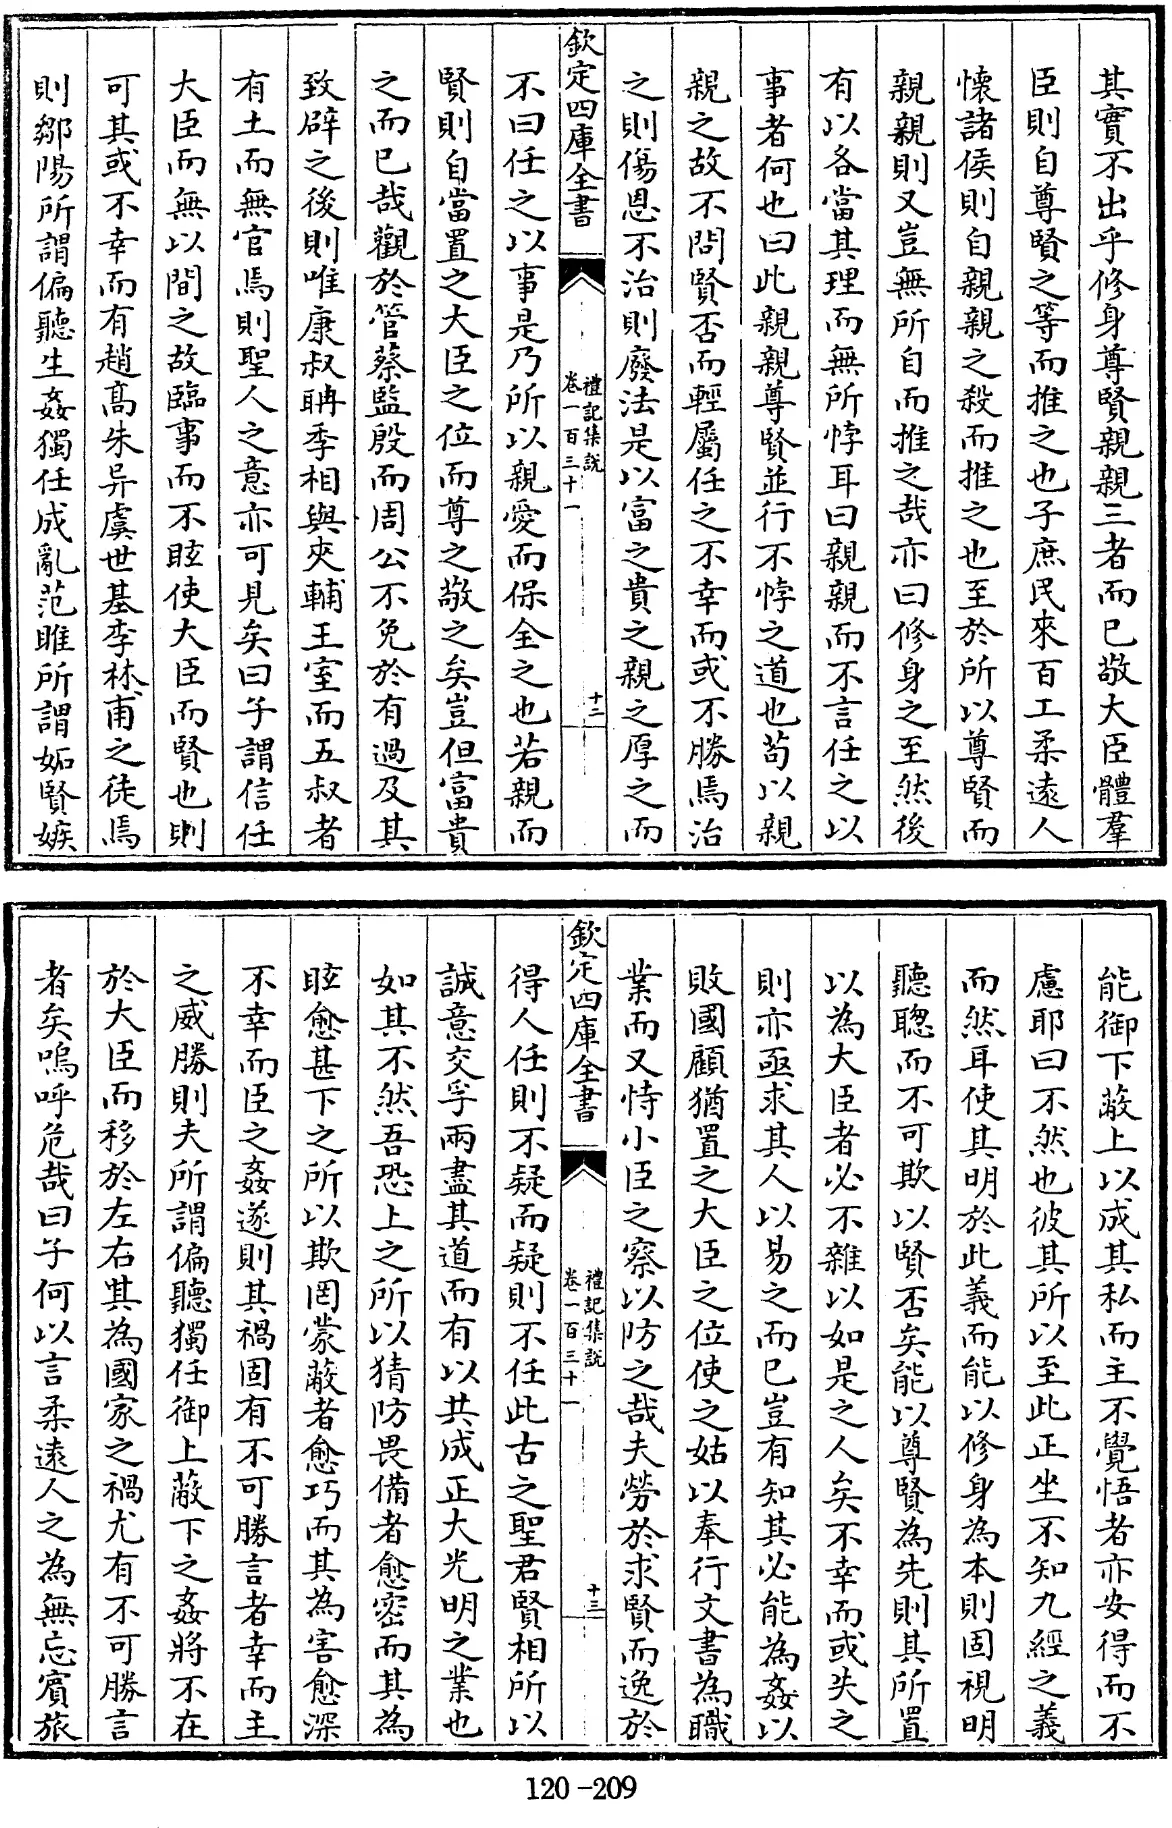 其實不出乎修身尊賢親親三者而已敬大臣體羣
臣則自尊賢之等而推之也子庶民來百工柔遠人
懐諸侯則自親親之殺而推之也至於所以尊賢而
親親則又豈無所自而推之哉亦曰修身之至然後
有以各當其理而無所悖耳曰親親而不言任之以
事者何也曰此親親尊賢並行不悖之道也苟以親
親之故不問賢否而輕屬任之不幸而或不勝焉治
之則傷恩不治則廢法是以富之貴之親之厚之而
欽定四庫全書
禮記集說
卷一百三十一
十二
不曰任之以事是乃所以親愛而保全之也若親而
賢則自當置之大臣之位而尊之敬之矣豈但富貴
之而已哉觀於管蔡監殷而周公不免於有過及其
致辟之後則唯康叔聃季相與夾輔王室而五叔者
有土而無官焉則聖人之意亦可見矣曰子謂信任
大臣而無以間之故臨事而不眩使大臣而賢也則
可其或不幸而有趙高朱异虞世基李林甫之徒焉
則鄒陽所謂偏聽生姦獨任成亂范雎所謂妬賢嫉
能御下蔽上以成其私而主不覺悟者亦安得而不
慮耶曰不然也彼其所以至此正坐不知九經之義
而然耳使其明於此義而能以修身為本則固視明
聽聰而不可欺以賢否矣能以尊賢為先則其所置
以為大臣者必不雜以如是之人矣不幸而或失之
則亦亟求其人以易之而已豈有知其必能為姦以
敗國顧猶置之大臣之位使之姑以奉行文書為職
業而又恃小臣之察以防之哉夫勞於求賢而逸於
欽定四庫全書
禮記集說
卷一百三十一
十三
得人任則不疑而疑則不任此古之聖君賢相所以
誠意交孚兩盡其道而有以共成正大光明之業也
如其不然吾恐上之所以猜防畏備者愈密而其為
眩愈甚下之所以欺罔蒙蔽者愈巧而其為害愈深
不幸而臣之姦遂則其禍固有不可勝言者幸而主
之威勝則夫所謂偏聽獨任御上蔽下之姦將不在
於大臣而移於左右其為國家之禍尤有不可勝言
者矣嗚呼危哉曰子何以言柔遠人之為無忘賓旅
120-209